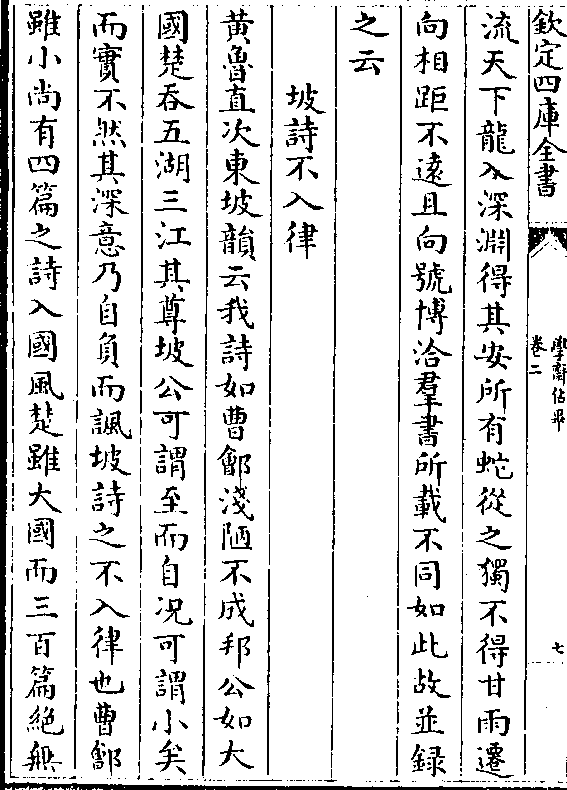 欽定四庫全書
學齋佔畢
卷二
七
流天下龍入深淵得其安所有蛇從之獨不得甘雨遷
向相距不遠且向號博洽羣書所載不同如此故並録
之云
坡詩不入律
黄魯直次東坡韻云我詩如曹鄶淺陋不成邦公如大
國楚吞五湖三江其尊坡公可謂至而自况可謂小矣
而實不然其深意乃自負而諷坡詩之不入律也曹鄶
雖小尚有四篇之詩入國風楚雖大國而三百篇絶無